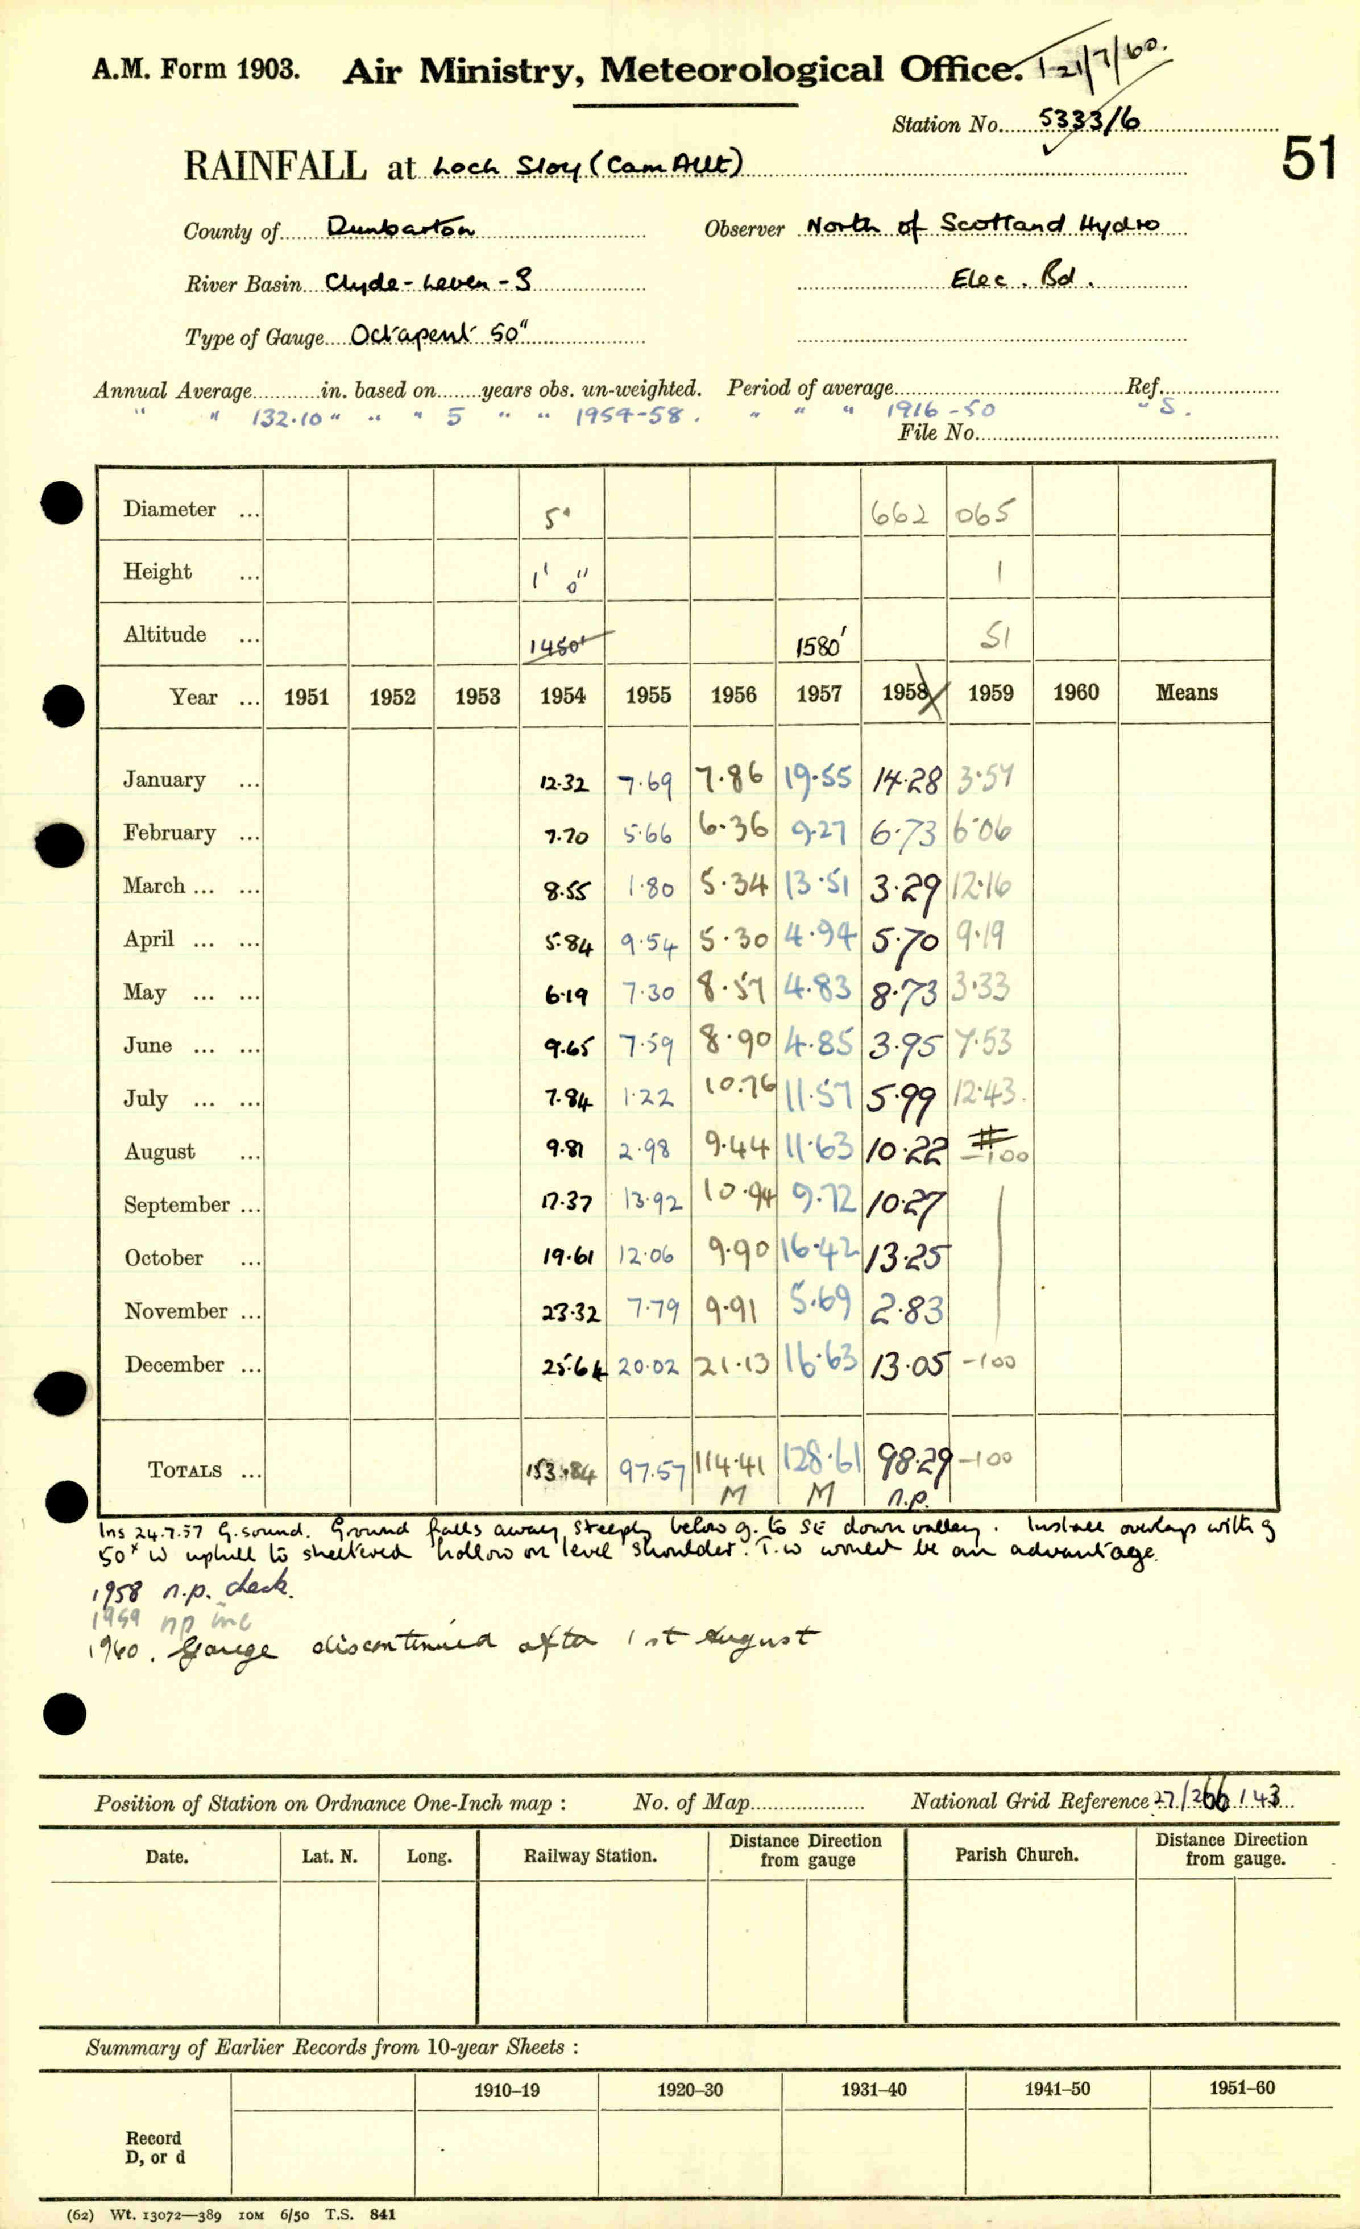 A.M. Form 1903. Air Ministry, Meteorological Office. 21/7/60.
Station No. 5333/6
51
RAINFALL at Loch Sloy (Cam Allt)
County of Dunbarton Observer North of Scotland Hydro
River Basin Clyde-Leven-S Elec. Bd.
Type of Gauge Octapent 50"
Annual Average in. based on years obs. un-weighted. Period of average Ref.
" " 132.10 " " " 5 " " 1954-58. " " " 1916-50 " S.
File No.
Diameter ... 5" 662 065
Height ... 1' 0" 1
Altitude ... 1450' 1580' 51
Year ... 1951 1952 1953 1954 1955 1956 1957 1958 1959 1960 Means
January ... 12.32 7.69 7.86 19.55 14.28 3.57
February ... 7.70 5.66 6.36 9.27 6.73 6.06
March ... ... 8.55 1.80 5.34 13.51 3.29 12.16
April ... ... 5.84 9.54 5.30 4.94 5.70 9.19
May ... ... 6.19 7.30 8.57 4.83 8.73 3.33
June ... ... 9.65 7.59 8.90 4.85 3.95 7.53
July ... ... 7.84 1.22 10.76 11.57 5.99 12.43
August ... 9.81 2.98 9.44 11.63 10.22 # -100
September ... 17.37 13.92 10.94 9.72 10.27
October ... 19.61 12.06 9.90 16.42 13.25
November ... 23.32 7.79 9.91 5.69 2.83
December ... 25.64 20.02 21.13 16.63 13.05 -100
TOTALS ... 153.84 97.57 114.41 128.61 98.29 -100
M M n.p.
Ins 24.7.57 G. sound. Ground falls away steeply below g. to SE down valley. Install overlap with g
50x W uphill to sheltered hollow on level shoulder. T.W would be an advantage.
1958 n.p. check.
1959 np inc
1960. Gauge discontinued after 1st August
Position of Station on Ordnance One-Inch map : No. of Map National Grid Reference 27/266143
Date. Lat. N. Long. Railway Station. Distance Direction from gauge Parish Church. Distance Direction from gauge.
Summary of Earlier Records from 10-year Sheets :
1910–19 1920–30 1931–40 1941–50 1951–60
Record
D, or d
(62) Wt. 13072—389 10M 6/50 T.S. 841